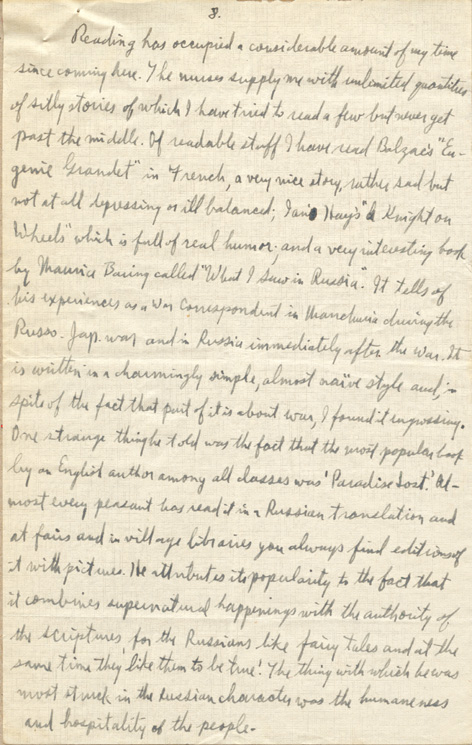 8.
Reading has occupied a considerable amount of my time
since coming here. The nurses supply me with unlimited quantities
of silly stories of which I have tried to read a few but never get
past the middle. Of readable stuff I have read Balzac's "Eu-
genie Grandet" in French, a very nice story, rather sad but
not at all depressing or ill balanced; Ian Hay's "A Knight on
Wheels" which is full of real humor; and a very interesting book
by Maurice Baring called "What I Saw in Russia". It tells of
his experiences as a War Correspondent in Manchuria during the
Russo-Jap. war and in Russia immediately after the war. It
is written in a charmingly simple, almost naïve style and, in
spite of the fact that part of it is about war, I found it engrossing.
One strange thing he told was the fact that the most popular book
by an English author among all classes was 'Paradise Lost'. Al-
most every peasant has read it in a Russian translation and
at fairs and in village libraries you always find editions of
it with pictures. He attributes its popularity to the fact that
it combines supernatural happenings with the authority of
the scriptures, for the Russians like fairy tales and at the
same time they like them to be true! The thing with which he was
most struck in the Russian character was the humaneness
and hospitality of the people.